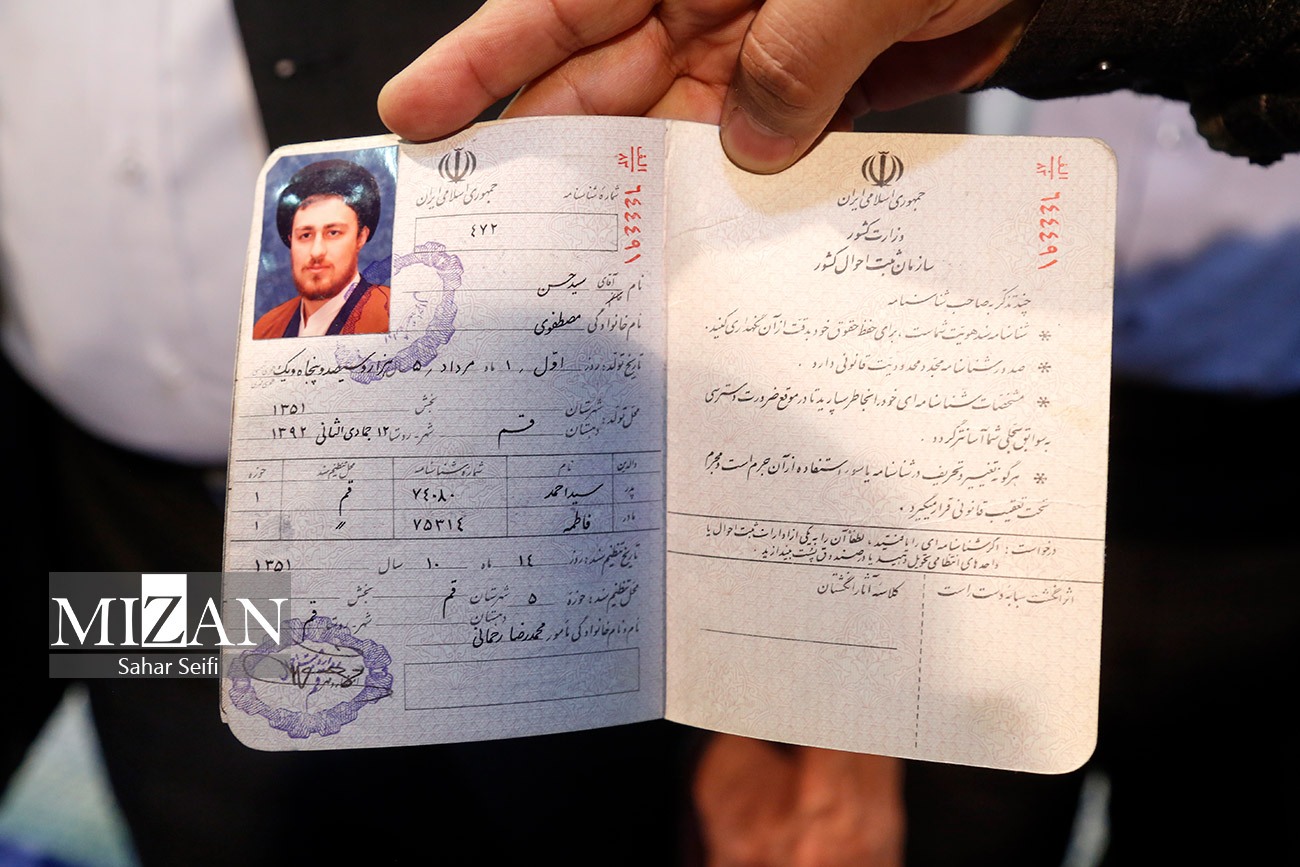 جمهوری اسلامی ایران
شماره شناسنامه
۴۷۲
الف
۸۳
۶۴۴۴۹۱
نام آقای خانم سیدحسن
نام خانوادگی مصطفوی
تاریخ تولد: روز اول ۱ ماه مرداد ۵ هزار و سیصد و پنجاه و یک
محل تولد: شهرستان بخش ۱۳۵۱
دهستان قم شهر-روستا ۱۲ جمادی الثانی ۱۳۹۲
والدین نام شماره شناسنامه محل تنظیم سند حوزه
پدر سید احمد ۷۴۰۸۰ قم ۱
مادر فاطمه ۷۵۳۱۴ " ۱
تاریخ تنظیم سند: روز ۱۴ ماه ۱۰ سال ۱۳۵۱
محل تنظیم سند: حوزه ۵ شهرستان قم بخش
دهستان شهر-روستا قم
نام و نام خانوادگی مأمور محمدرضا رحمانی
جمهوری اسلامی ایران
وزارت کشور
سازمان ثبت احوال کشور
الف
۸۳
۶۴۴۴۹۱
چند تذکر به صاحب شناسنامه
* شناسنامه سند هویت شماست، برای حفظ حقوق خود بدقت از آن نگهداری کنید.
* صدور شناسنامه مجدد محدودیت قانونی دارد.
* مشخصات شناسنامه ای خود را بخاطر بسپارید تا در موقع ضرورت دسترسی
به سوابق سجلی شما آسانتر گردد.
* هرگونه تغییر و تحریف در شناسنامه یا سوء استفاده از آن جرم است و مجرم
تحت تعقیب قانونی قرار میگیرد.
درخواست: اگر شناسنامه ای را یافتید، لطفاً آن را به یکی از ادارات ثبت احوال یا
واحدهای انتظامی تحویل دهید یا در صندوق پست بیندازید.
اثر انگشت سبابه دست راست
کلاسه آثار انگشتان
MIZAN
Sahar Seifi